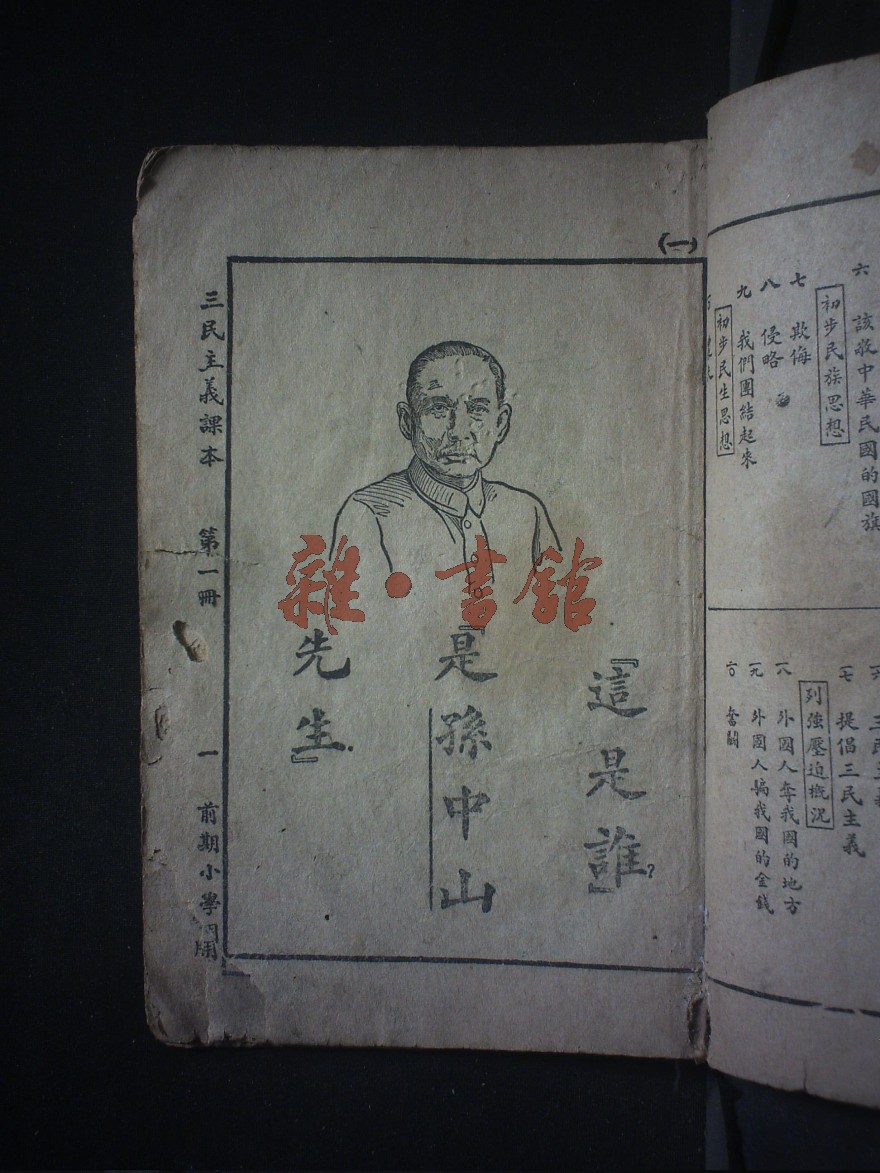 六 該敬中華民國的國旗
初步民族思想
七 欺侮
八 侵略
九 我們團結起來
初步民生思想
七 提倡三民主義
列強壓迫概況
一八 外國人奪我國的地方
一九 外國人騙我國的金錢
二〇 奮鬭
(一)
『這是誰』?
『是孫中山
先生』.
三民主義課本 第一冊 一 前期小學用
雜·書館